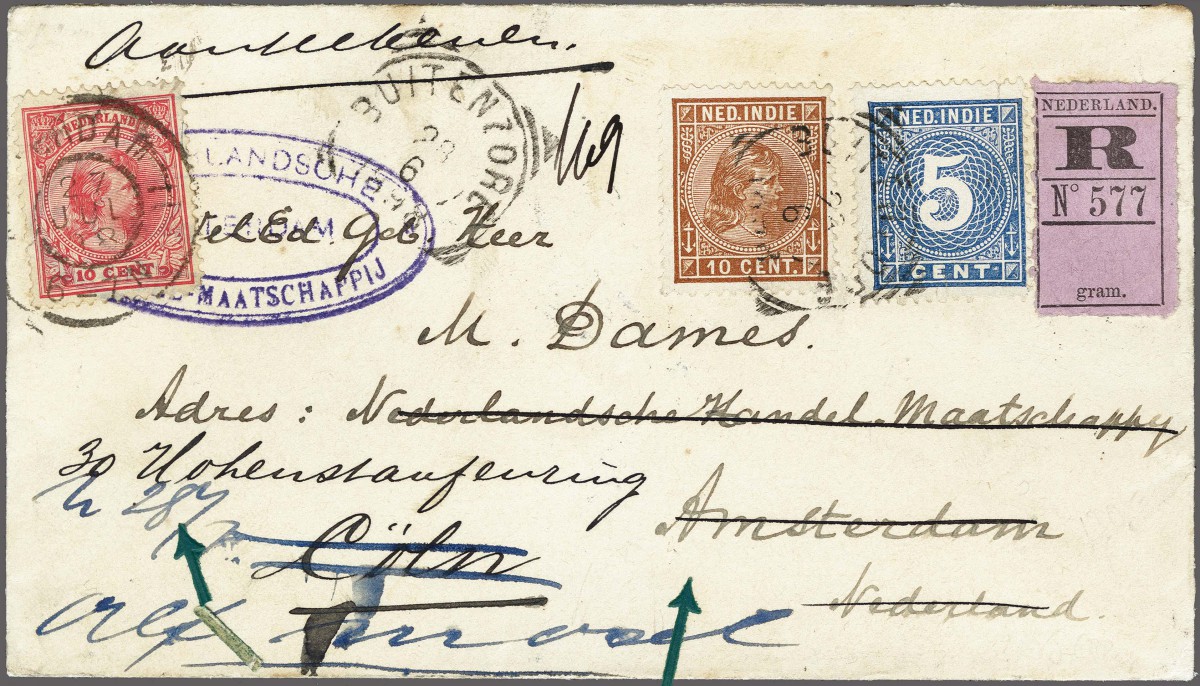 Aanteekenen.
BUITENZORG
28
6
NEDERLAND
10 CENT
24
JUL
LANDSCHE
-MAATSCHAPPIJ
169
NED. INDIE
10 CENT.
NED. INDIE
5
CENT
NEDERLAND.
R
N° 577
gram.
WelEd Geb. Heer
M. Dames.
Adres: Nederlandsche Handel-Maatschappy
30 Hohenstaufenring
Amsterdam
Cöln
Nederland.